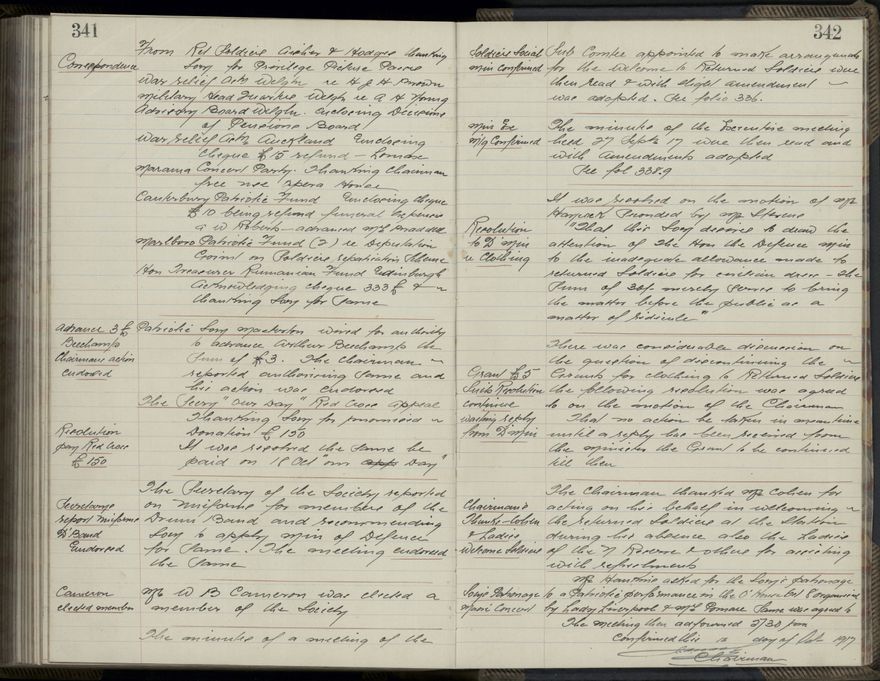 341
Correspondence
From Ret Soldiers Archer & Hodges thanking
Socy for Privilege Release Passes
War Relief Assn Welgtn re H J H Brown
Military Head Quarters Welgtn re A H Young
Advisory Board Welgtn. enclosing Decisions
of Pensions Board
War relief Assn Auckland Enclosing
Cheque £5 refund – Lomax
Marama Concert Party. Thanking Chairman
free use Opera House
Canterbury Patriotic Fund Enclosing cheque
£10 being refund funeral Expenses
a W Roberts – advanced
Marlboro Patriotic Fund (2) re Deputation
Govmt on Soldiers repatriation Scheme
Hon Treasurer Rumanian Fund Edinburgh
Acknowledging cheque 333 £ & –
thanking Socy for same
Advance 3 £ to
Beechamp
Chairmans action
Endorsed
Patriotic Socy Masterton wired for authority
to advance Arthur Beechamp the
Sum of £3. The Chairman –
reported authorising same and
his action was endorsed
The Secry "Our Day" Red Cross Appeal
Thanking Socy for promised –
Donation £150
Resolution
pay Red Cross
£150
It was resolved the same be
paid on 18 Oct "our Day"
Secretarys
report Uniforms
D' Band
Endorsed
The Secretary of the Society reported
on Uniforms for members of the
Drum Band and recommending
Socy to apply Min of Defence
for same. The meeting endorsed
the same
Cameron
elected member
Mr W B Cameron was elected a
member of the Society
The minutes of a meeting of the
342
Soldiers Social
Min Confirmed
Sub Comtee appointed to make arrangements
for the welcome to Returned Soldiers were
then read & with slight amendment –
was adopted. See folio 336.
Min Ex
Mtg Confirmed
The minutes of the Executive meeting
held 27 Septr 17 were then read and
with amendments adopted
See fol 338.9
Resolution
to D' Min
re Clothing
It was resolved on the motion of Mr
Seconded by Mr Stevens
"That this Socy desires to draw the
attention of The Hon the Defence Min
to the inadequate allowance made to
returned Soldiers for civilian dress – the
Sum of 30/- merely serves to bring
the matter before the public as a
matter of ridicule"
Grant £5
Suits Resolution
continue
waiting reply
from D' Min
There was considerable discussion on
the question of discontinuing the –
Grants for clothing to Returned Soldiers
the following resolution was agreed
to on the motion of the Chairman
That no action be taken in meantime
until a reply has been received from
the minister the Grant to be continued
till then
Chairman's
Thanks – Cohen
& Ladies
welcome Soldiers
The Chairman thanked Mr Cohen for
acting on his behalf in welcoming –
the returned Soldiers at the Station
during his absence also the Ladies
of the N Reserve & others for assisting
with refreshments
Socys Patronage
Maori Concert
Mr Hawkins asked for the Socys patronage
to a Patriotic performance in the O'House organised
by Lady Liverpool & Mrs Pomare Same was agreed to
The Meeting then adjourned 9/30 pm
Confirmed this 12 day of Oct 1917
Chairman